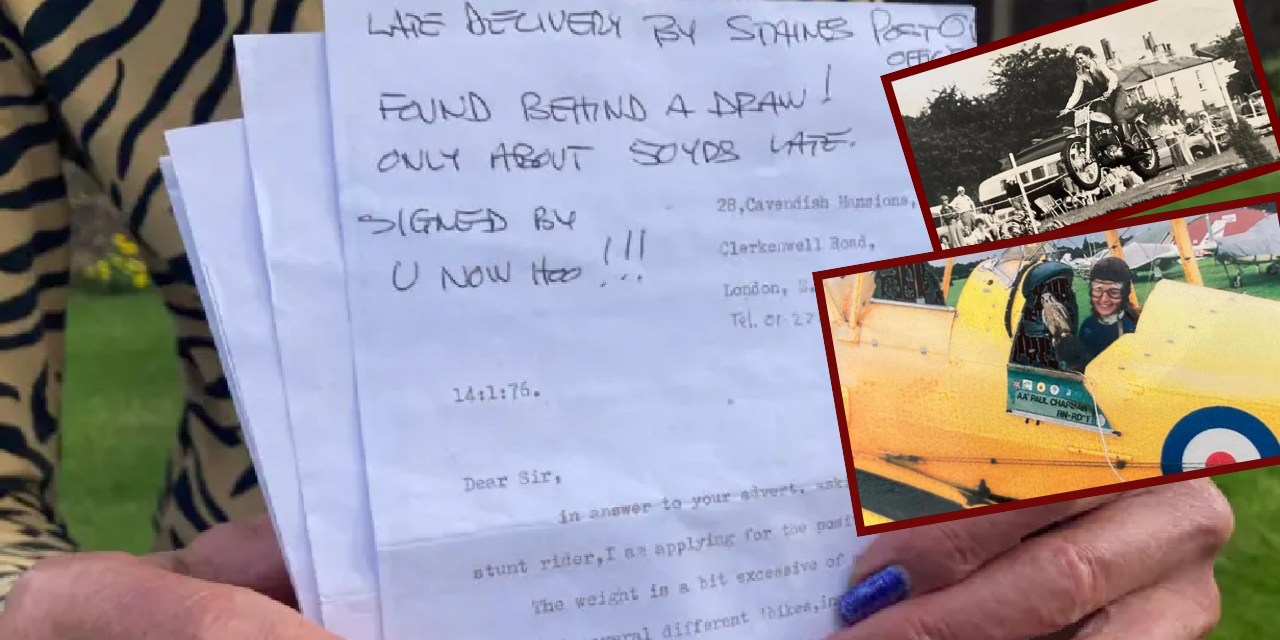 LATE DELIVERY BY STAINES POST
OFFICE
FOUND BEHIND A DRAW!
ONLY ABOUT 50YDS LATE.
SIGNED BY
U NOW HOO !!!
28,Cavendish Mansions,
Clerkenwell Road,
London,
Tel. 01-27
14:1:76.
Dear Sir,
in answer to your advert, ask
stunt rider,I am applying for the posi
The weight is a bit excessive of
several different 'bikes,in
AA' PAUL CHAPMAN
RN-RD'T